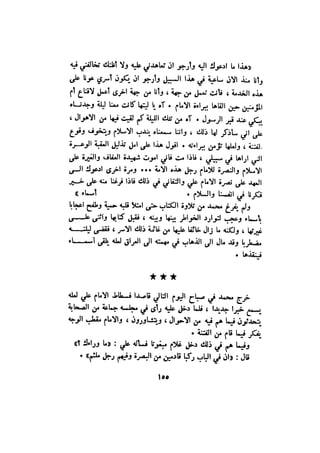 «هذا ما ادعوك اليه وارجو ان تعاهدني عليه ولا أظنك تخالفني فيه
الآن منذ الآن ساعية في هذا السبيل وأرجو ان يكون أسرى عونا على
هذه الخدمة ، فأنت تعمل من جهة ، وأنا من جهة أخرى أعمل لاقناع أم
المؤمنين حين القاها ببراءة الامام • آه يا ليتها كانت معنا ليلة وجدونا
نبكي عند قبر الرسول • آه من تلك الليلة كم لقيت فيها من الاهوال ،
على اني سأذكر لها ذلك ، واننا سمعناه يندب الاسلام ويتخوف وقوع
الفتنة ، ولعلها تؤمن ببراءته • أقول هذا على امل تذليل العقبة الوعـرة
التي اراها في سبيلي ، فاذا مت فاني اموت شهيدة العفاف والغيرة على
الاسلام والنصرة للامام رجل هذه الامة ••• ومرة اخرى ادعوك الـى
العهد على نصرة الامام علي والتفاني في ذلك فاذا فرغنا منه على خـير
فكرنا في انفسنا والسلام •
أسماء »
ولم يفرغ محمد من تلاوة الكتاب حتى امتلأ قلبه حمية وطفح اعجابا
بأسماء وعجب لتوارد الخواطر بينها وبينه ، فقبل كتابها واثنى علـــى
غيرتها ، ولكنه ما زال خائفا عليها من غائلة ذلك الاسر ، فقضى ليلتـــه
مضطربا وقد مال الى الذهاب في مهمته الى العراق لعله يلقى أسمـــاء
فينقذها •
★ ★ ★
خرج محمد في صباح اليوم التالي قاصدا فسطاط الامام علي لعله
يسمع خبرا جديدا ، فلما دخل عليه رأى في مجلسه جماعة من الصحابة
يتحدثون فيما هم فيه من الاحوال ، ويتشاورون ، والامام مقطب الوجه
يفكر فيما قام من الفتنة •
وفيما هم في ذلك دخل غلام مبغوتا فسأله علي : «ما وراءك ؟»
قال : «ان في الباب ركبا قادمين من البصرة وفيهم رجل ملثم» •
١٥٥